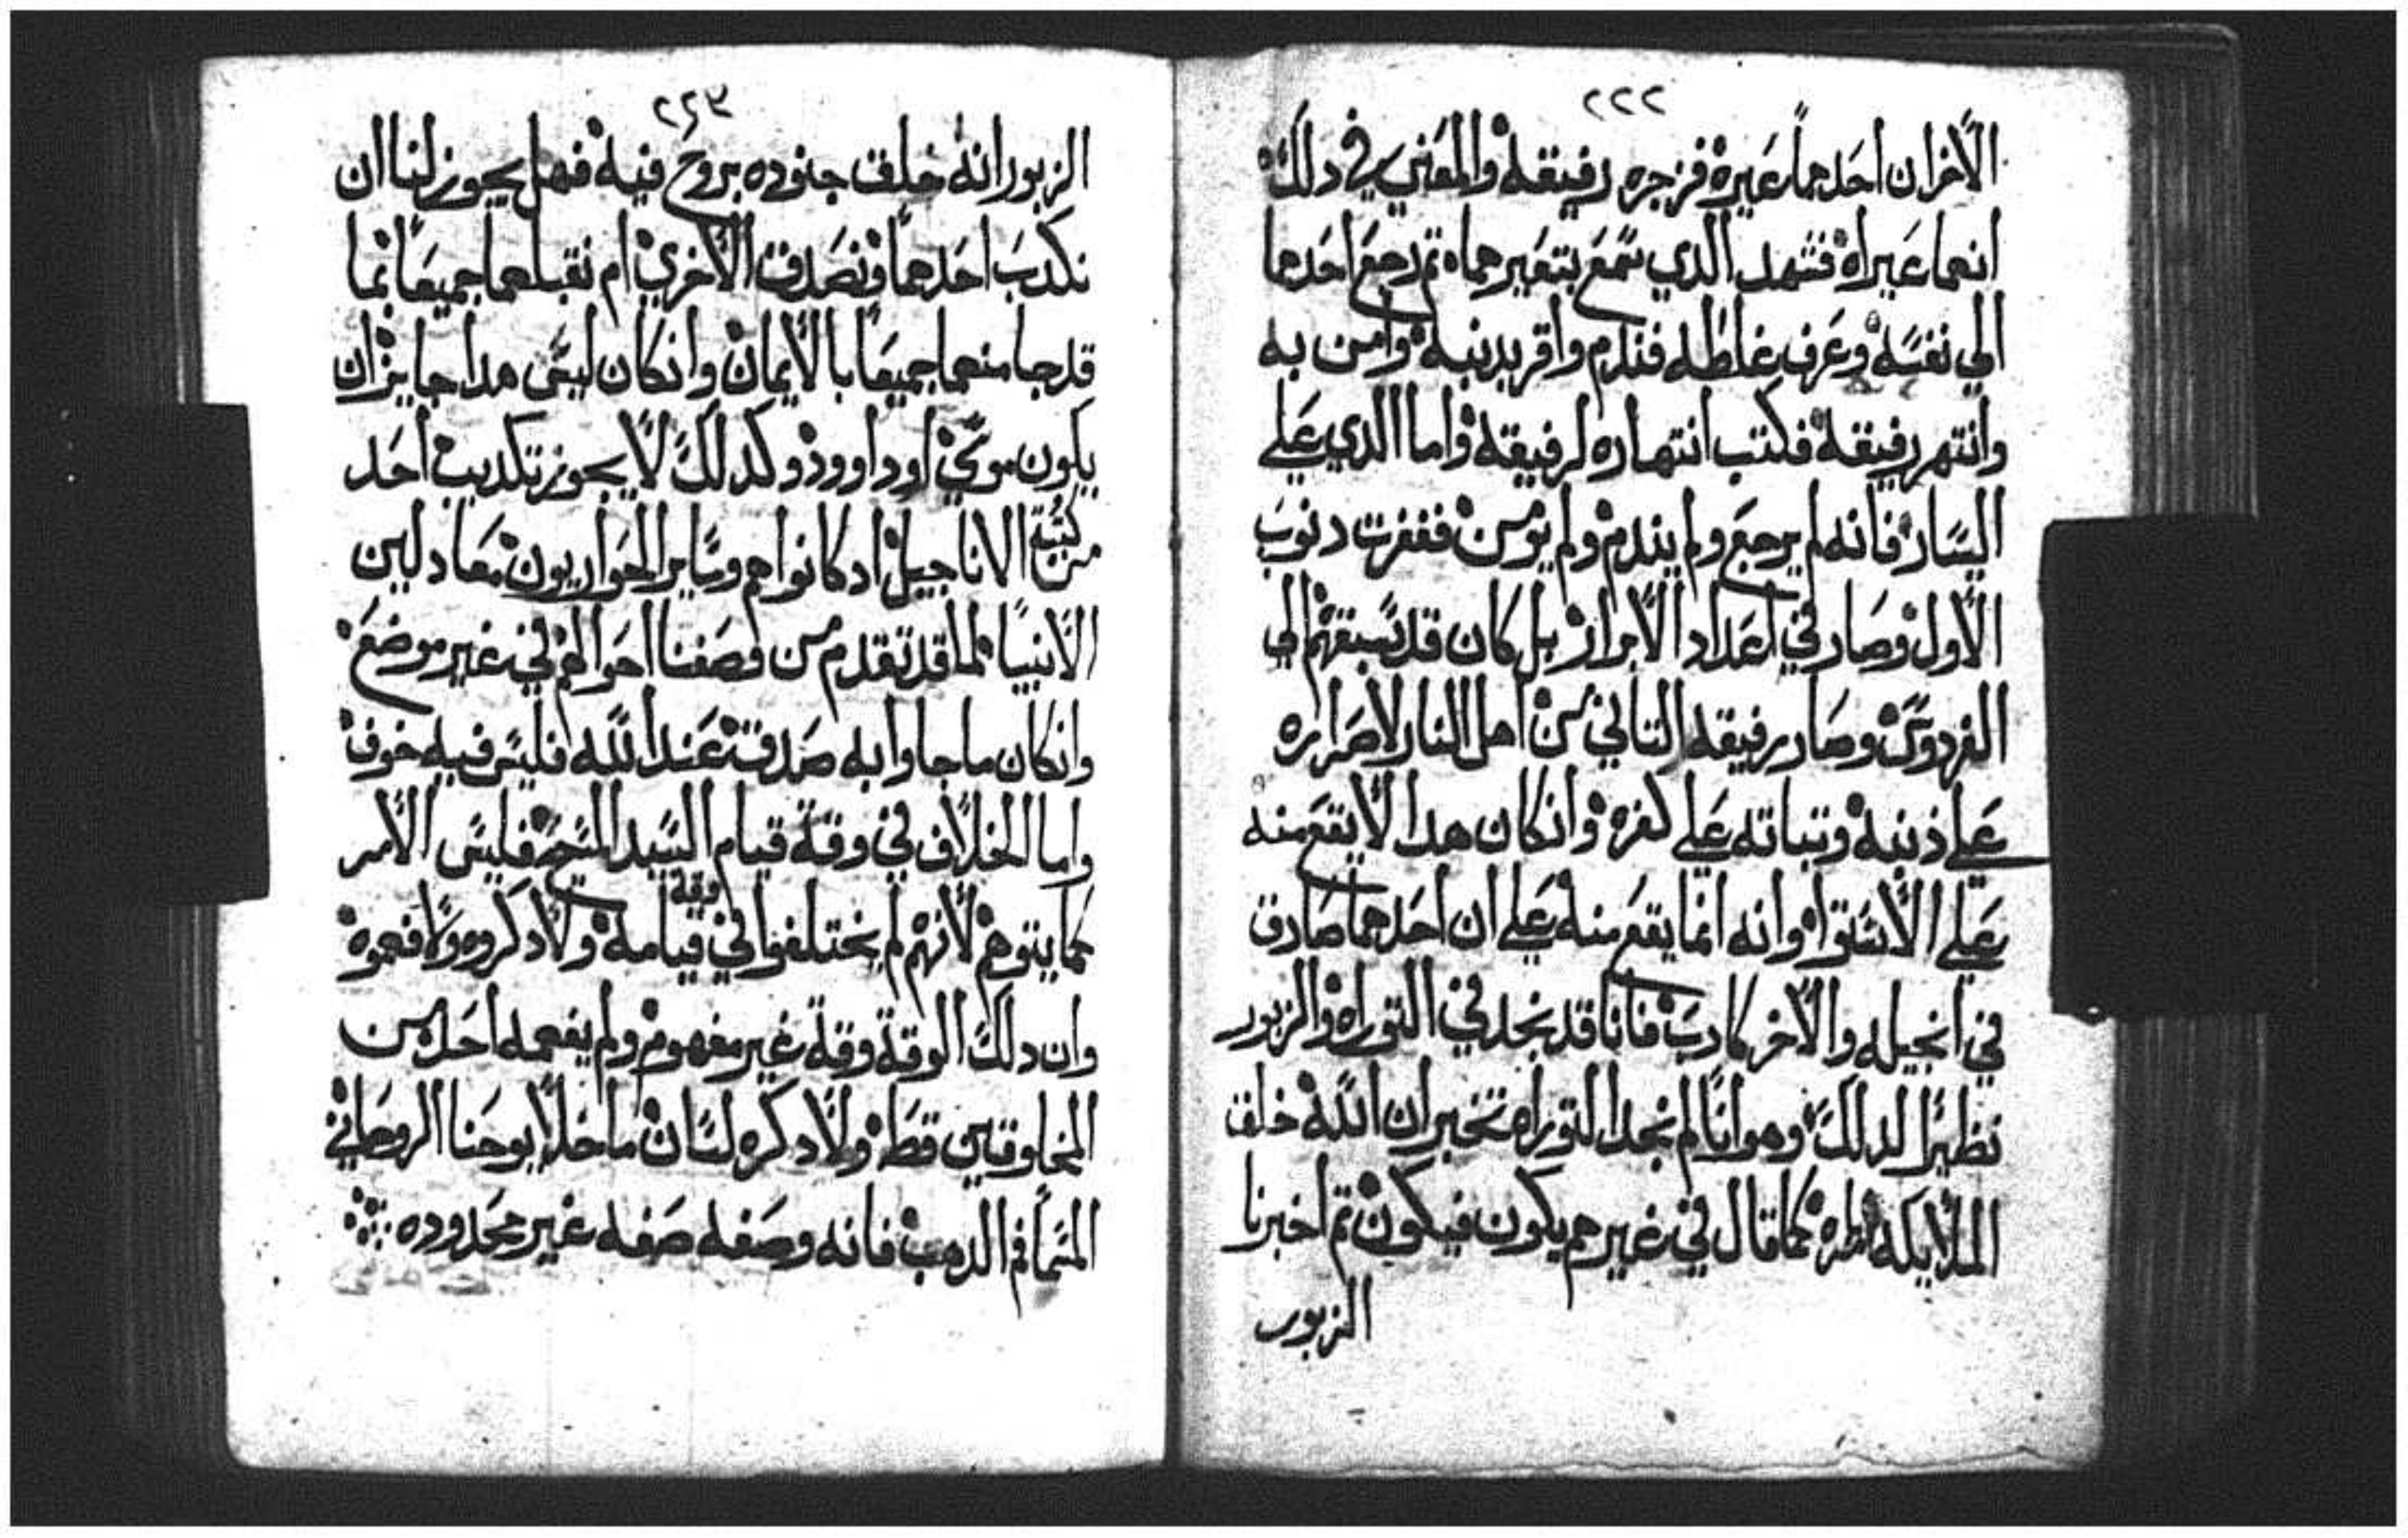 ٢٢٢
الاخران احدهما عيره فزجره رفيقه والمعني في دلك
انهما عيراه فشهد الدي سمع بتعيرهما ثم رجع احدهما
الي نفسه وعرف غلطه فندم واقر بدنبه وامن به
وانتهر رفيقه فكتب انتهاره لرفيقه واما الدي علي
اليسار فانه لم يرجع ولم يندم ولم يومن فغفرت دنوب
الاول وصار في اعداد الابرار بل كان قد سبقهم الي
الفردوس وصار رفيقه التاني من اهل النار لاصراره
علي ذنبه وتباته علي كفره وانكان هدا لا يقع منه
علي الاستوا وانه انما يقع منه علي ان احدهما صادق
في انجيله والاخر كادب فانا قد نجد في التوراه والزبور
نظيرا لدلك وهو انا لم نجد التوراه تخبر ان الله خلق
الملايكه كما قال في غيرهم يكون فيكون تم اخبرنا
الزبور
٢٢٣
الزبور انه خلق جنوده بروح فيه فهل يجوز لنا ان
نكدب احدهما ونصدق الاخري ام نقبلهما جميعا بما
قد جا منهما جميعا بالايمان وانكان ليس هدا جايز ان
يكون موسي او داوود وكدلك لا يجوز تكديب احد
من كتبة الاناجيل اد كانوا هم وساير الحواريون معادلين
الانبيا لما قد تقدم من وصفنا احوالهم في غير موضع
وانكان ما جاوا به صدق عند الله فليس فيه خوف
واما الخلاف في وقة قيام السيد المسيح فليس الامر
كما يتوهم لانهم لم يختلفوا في وقة قيامه ولا دكروه ولا فهموه
وان دلك الوقة وقة غير مفهوم ولم يفهمه احد من
المخلوقين قط ولا دكره لسان ما خلا يوحنا الروحاني
المتما فم الدهب فانه وصفه صفه غير محدوده